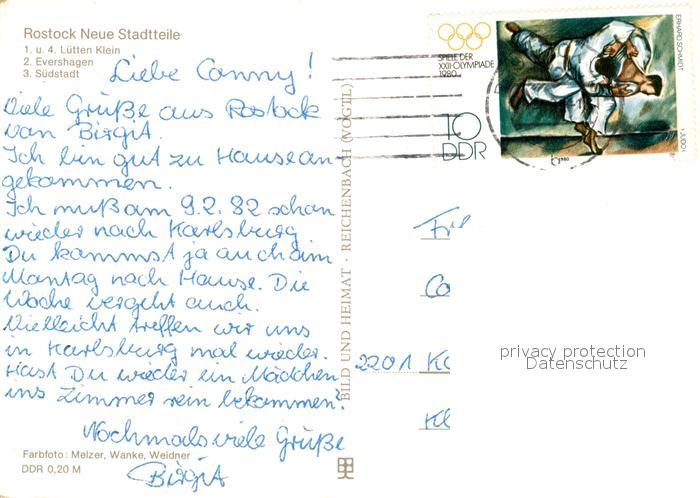 Rostock Neue Stadtteile
1. u. 4. Lütten Klein
2. Evershagen
3. Südstadt
Liebe Conny!
Viele Grüße aus Rostock
von Birgit.
Ich bin gut zu Hause an-
gekommen.
Ich muß am 9.2.82 schon
wieder nach Karlsburg
Du kommst ja auch am
Montag nach Hause. Die
Woche vergeht auch.
Vielleicht treffen wir uns
in Karlsburg mal wieder.
Hast Du wieder ein Mädchen
ins Zimmer rein bekommen?
Nochmals viele Grüße
Birgit
Farbfoto: Melzer, Wanke, Weidner
DDR 0,20 M
BILD UND HEIMAT · REICHENBACH (VOGTL)
SPIELE DER
XXII. OLYMPIADE
1980
10
DDR
ERHARD SCHMIDT
1980
Co
2201
privacy protection
Datenschutz